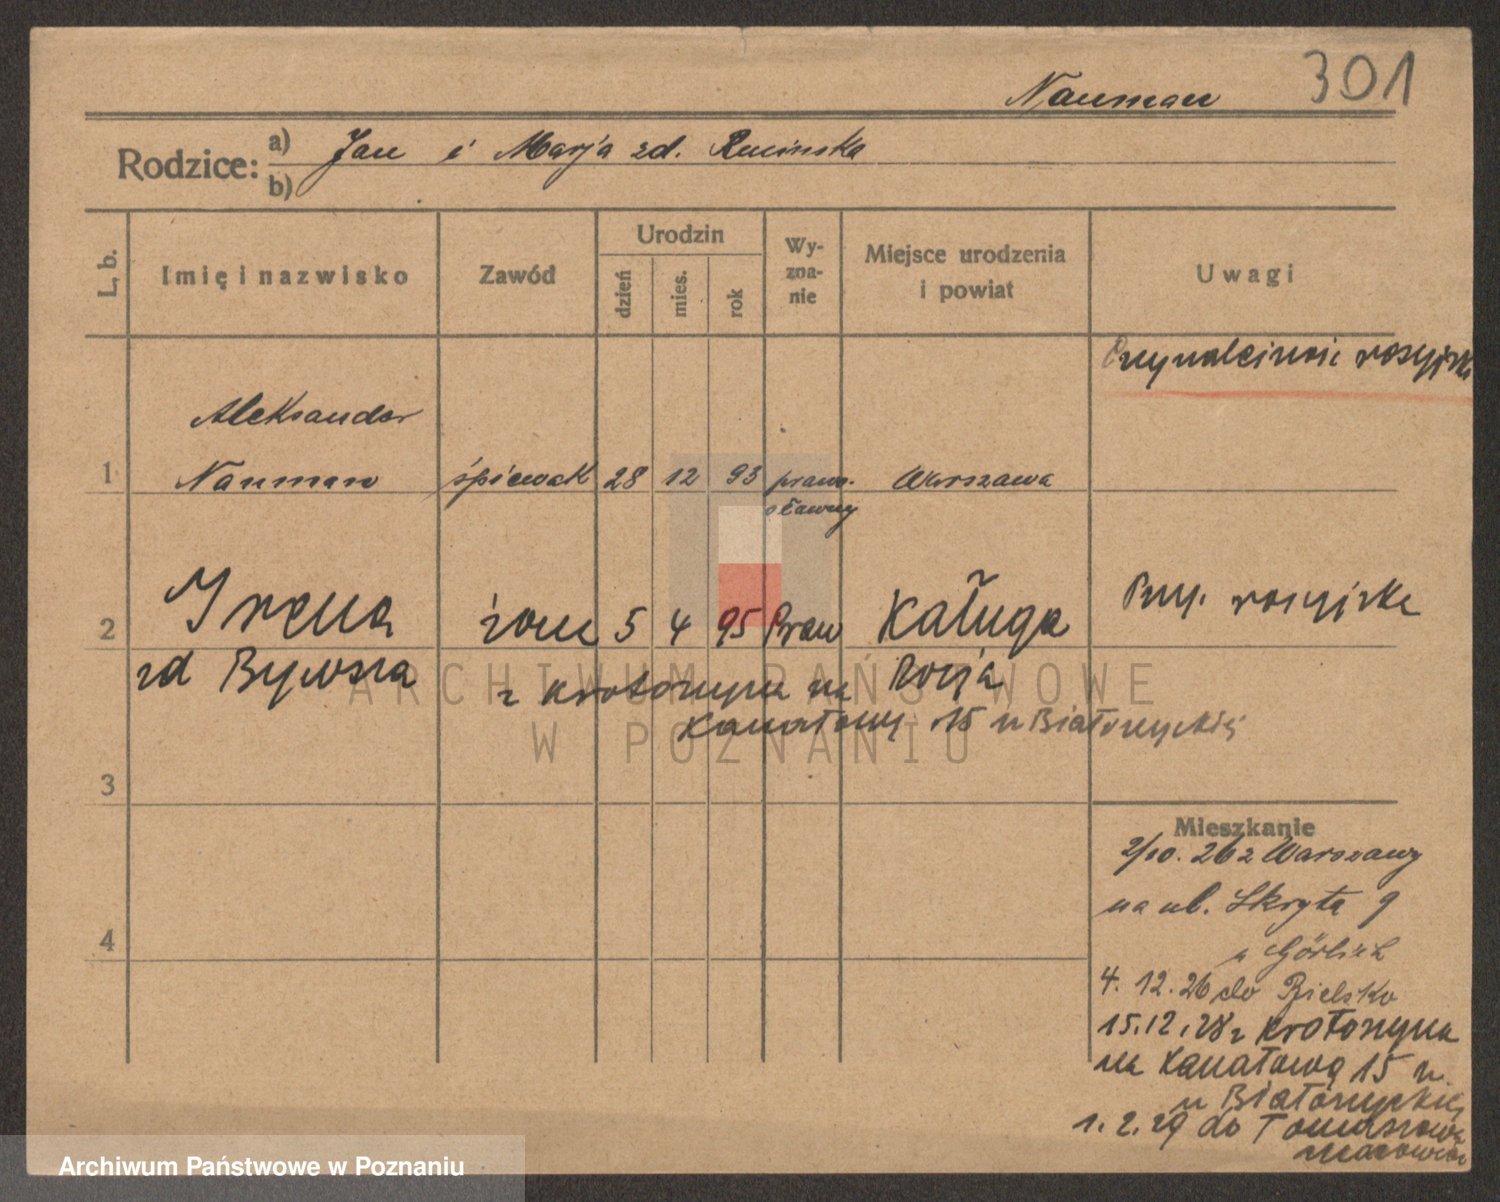 Nauman 301
Rodzice: a) Jan i Marja zd. Rucinska
b)
L. b. Imię i nazwisko Zawód Urodzin dzień mies. rok Wyznanie Miejsce urodzenia i powiat Uwagi
rosyjska
Aleksander
1 Nauman śpiewak 28 12 93 prawo- Warszawa
sławny
2 Irena żona 5 4 95 Praw Kaługa Przy. rosyjska
zd Rosja
z Krotoszyna na
Kanałową 15 u Białoszyckiej
3
Mieszkanie
2/10. 26 z Warszawy
na ul. Skryta 9
4
u
4. 12. 26 do Bielsko
15.12.28 z Krotoszyna
na Kanałową 15 u.
u Białoszyckiej
1. 2. 29 do Tomaszowa
ARCHIWUM PAŃSTWOWE
W POZNANIU
Archiwum Państwowe w Poznaniu